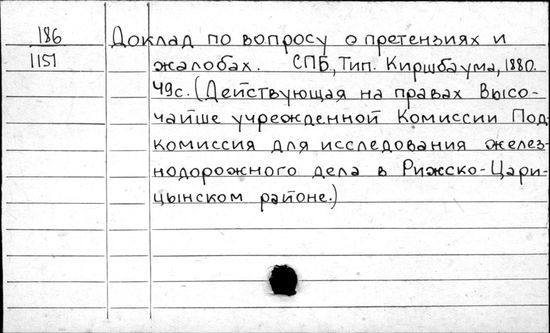 186
1151
Доклад по вопросу о претензиях и
жалобах. СПБ, Тип. Киршбаума, 1880.
49с. (Действующая на правах Высо-
чайше учрежденной Комиссии Под-
комиссия для исследования желез-
нодорожного дела в Рижско-Цари-
цынском районе.)